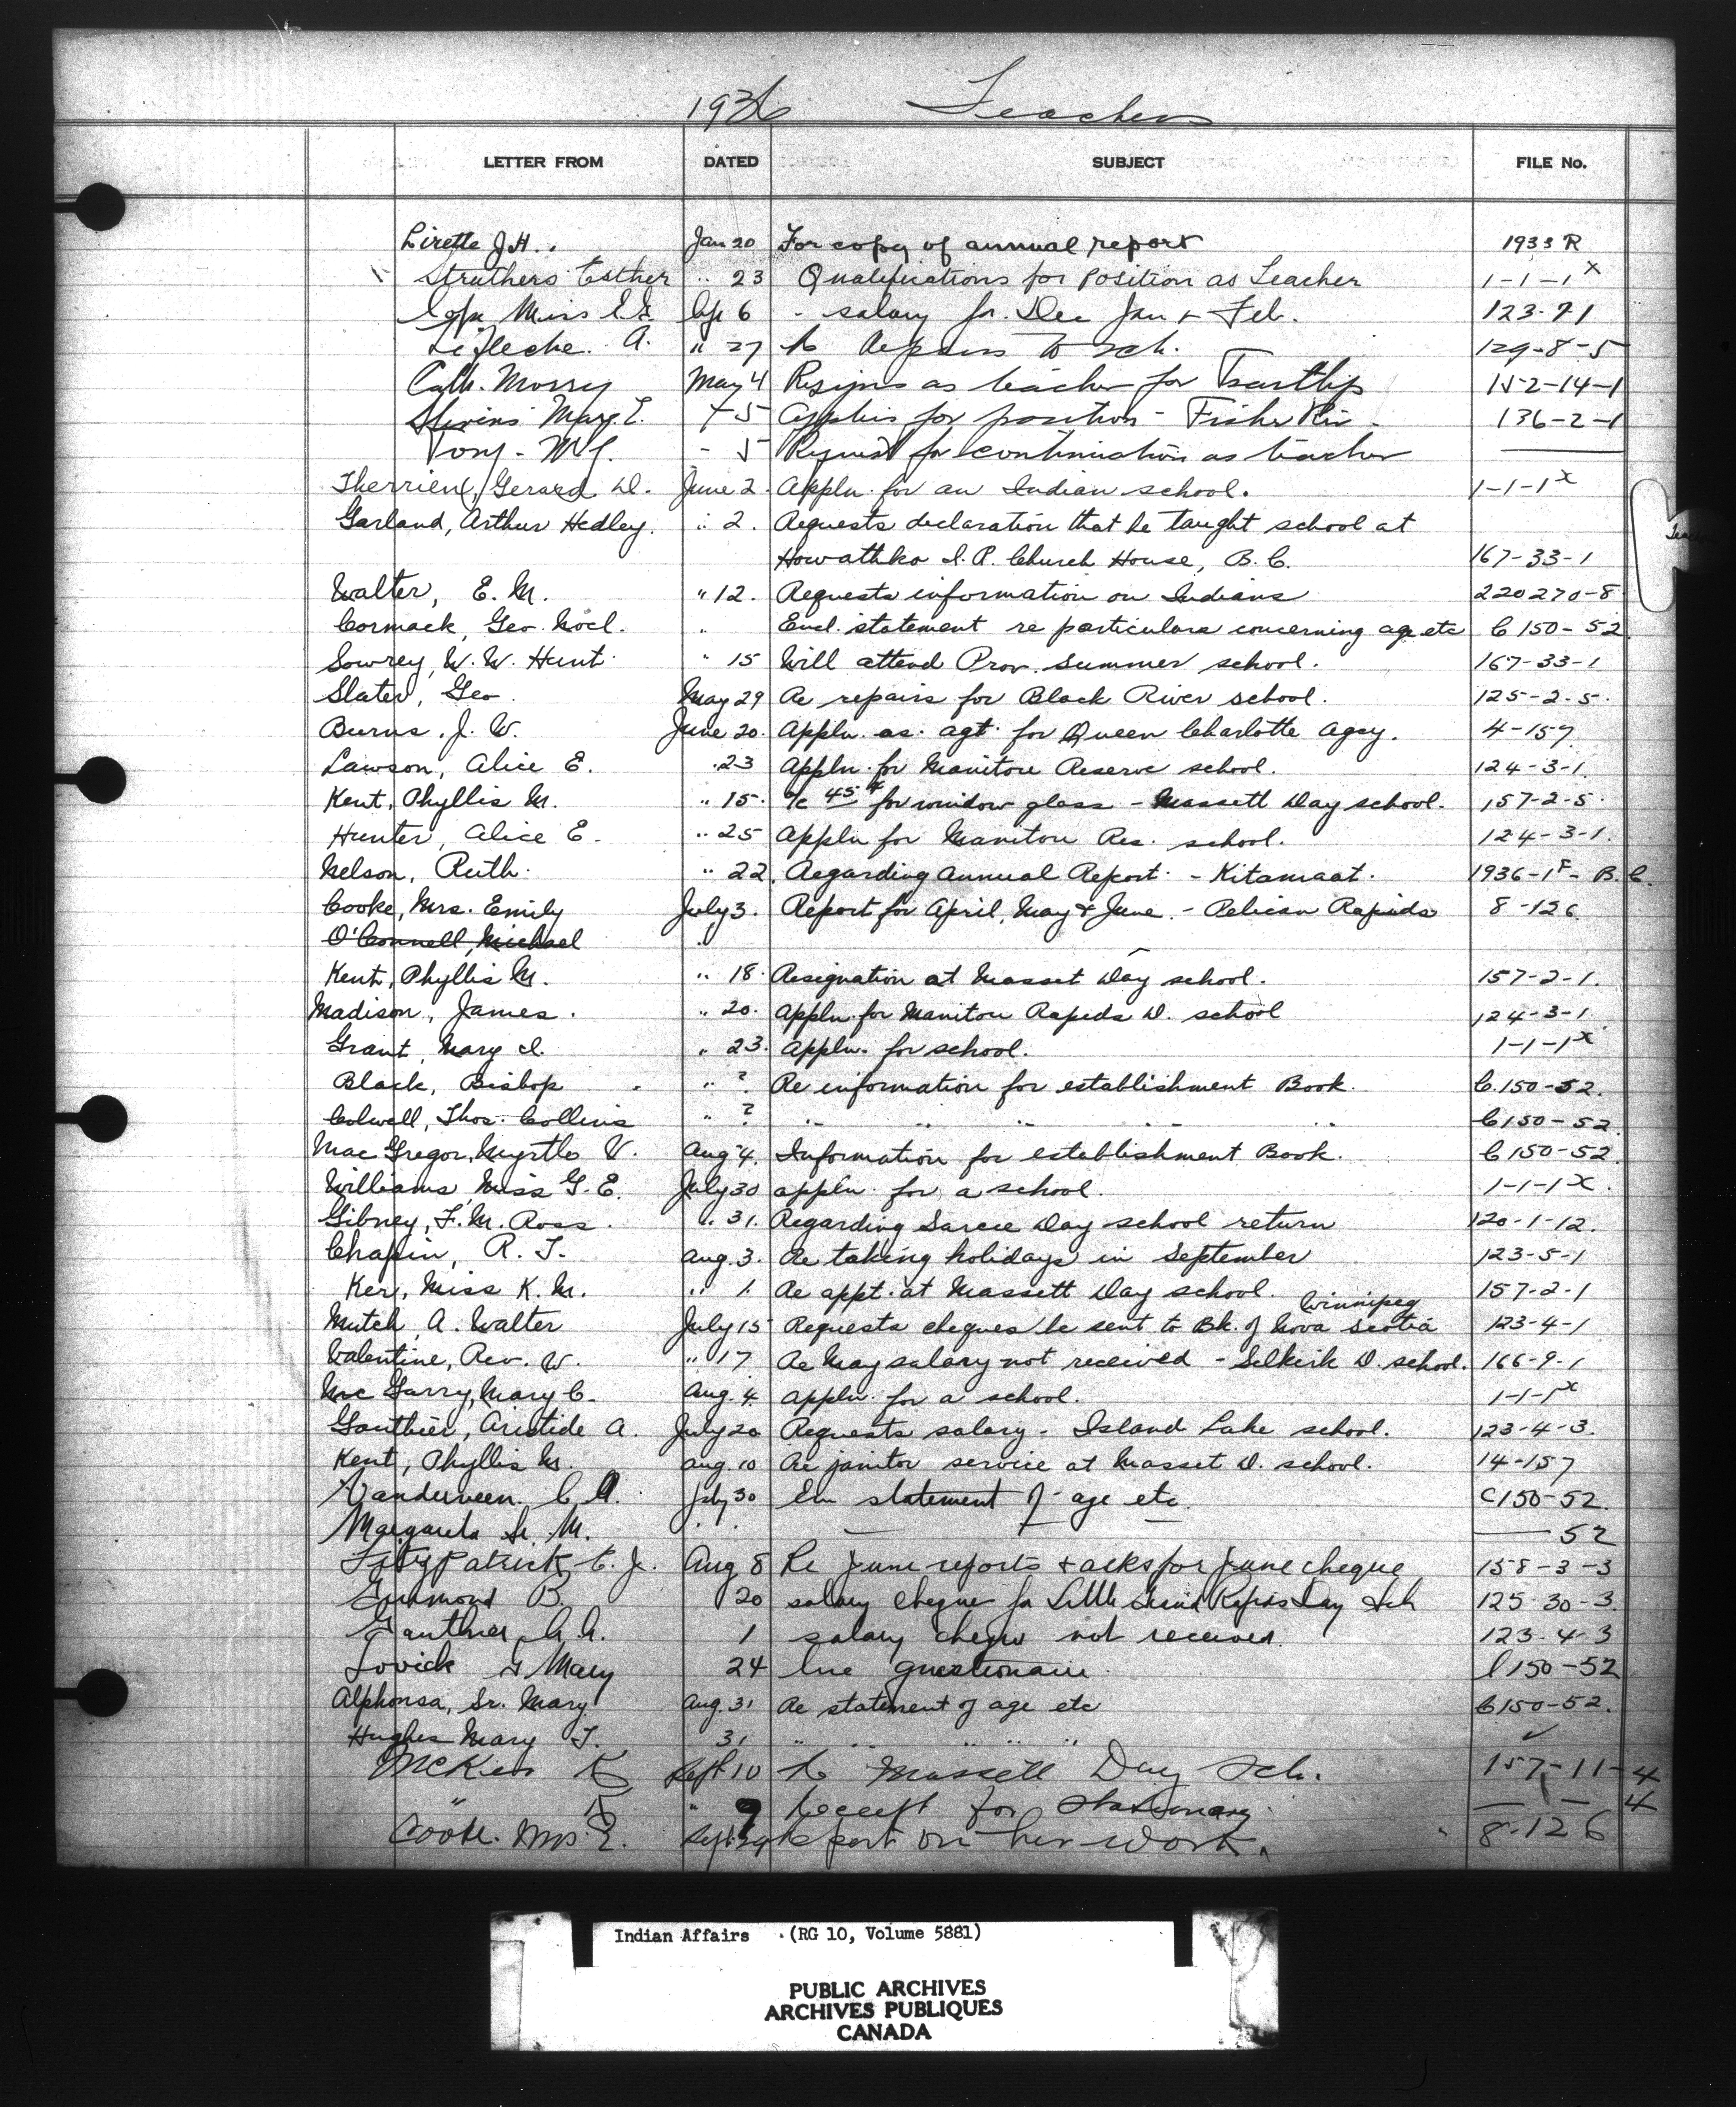 1936 Teachers
LETTER FROM DATED SUBJECT FILE No.
Lirette J.H. Jan 20 For copy of annual report 1933 R
Struthers Esther " 23 Qualifications for position as Teacher 1-1-1 x
Miss Ap 6 - salary for Dec Jan + Feb. 123-7-1
Lefleche. A. " 27 Re Repairs to sch. 129-8-5
Cath. Morry May 4 Resigns as teacher for Tsartlip 152-14-1
Mary E. 5 Applies for position - Fisher Riv. 136-2-1
- 5 Request for continuation as teacher
Therrien, Gerard D. June 2. Appln. for an Indian school. 1-1-1 x
Garland, Arthur Hedley. " 2. Requests declaration that he taught school at
Howathko I.R. Church House, B.C. 167-33-1
Walter, E. M. " 12. Requests information on Indians 220270-8
Cormack, Geo. Noel. " Encl. statement re particulars concerning age etc C 150-52.
Sowrey, W. W. Hunt " 15 Will attend Prov. Summer school. 167-33-1
Slater, Geo. May 29 Re repairs for Black River school. 125-2-5.
Burns, J. W. June 20. Appln. as. agt. for Queen Charlotte Agcy. 4-157
Lawson, Alice E. " 23 Appln. for Manitou Reserve school. 124-3-1
Kent, Phyllis M. " 15. a/c 45¢ for window glass - Massett Day school. 157-2-5.
Hunter, Alice E. " 25 Appln for Manitou Res. school. 124-3-1.
Nelson, Ruth. " 22. Regarding Annual Report - Kitamaat. 1936-1F- B.C.
Cooke, Mrs. Emily July 3. Report for April, May & June. - Pelican Rapids 8-126
O'Connell, Michael "
Kent, Phyllis M. " 18. Resignation at Masset Day school. 157-2-1.
Madison, James. " 20. Appln. for Manitou Rapids D. school 124-3-1.
Grant, Mary I. " 23. Appln. for school. 1-1-1 x
Black, Bishop " ? Re information for establishment Book. C.150-52.
Colwell, Thos. Collins " ? " " " " " C150-52.
MacGregor, Myrtle V. Aug 4. Information for establishment Book. C 150-52.
Williams, Miss G. E. July 30 appln. for a school. 1-1-1 x.
Gibney, F. M. Ross. " 31. Regarding Sarcee Day school return 120-1-12.
Chapin, R. T. Aug. 3. Re taking holidays in September 123-5-1
Ker, Miss K. M. " 1. Re appt. at Massett Day school. 157-2-1
Winnipeg
Mutch, A. Walter July 15 Requests cheques be sent to Bk. of Nova Scotia 123-4-1
Valentine, Rev. W. " 17. Re May salary not received - Selkirk D. school. 166-9-1
McGarry, Mary C. Aug. 4. Appln. for a school. 1-1-1 x
Gauthier, Aristide A. July 20 Requests salary - Island Lake school. 123-4-3.
Kent, Phyllis M. Aug. 10 Re janitor service at Masset D. school. 14-157
Vanderveen, C. A. July 30 Enc statement of age etc. C150-52.
Margareta Sr. M. " " — — — 52
Fitzpatrick C. J. Aug 8 Re June reports & asks for June cheque 158-3-3
B. 20 salary cheque for Little Grand Rapids Day Sch 125-30-3.
Gauthier A.A. 1 salary cheque not received. 123-4-3
Mary 24 Enc questionaire. C150-52
Alphonsa, Sr. Mary Aug. 31 Re statement of age etc C150-52.
Hughes Mary T. 31 " " " " " ✓
McKer K Sept 10 Re Massett Day Sch. 157-11-4
" K " 9 Receipt for stationary — 1 — 4
Cooke. Mrs. E. Sept 29 Report on her work. 8-126
Indian Affairs (RG 10, Volume 5881)
PUBLIC ARCHIVES
ARCHIVES PUBLIQUES
CANADA